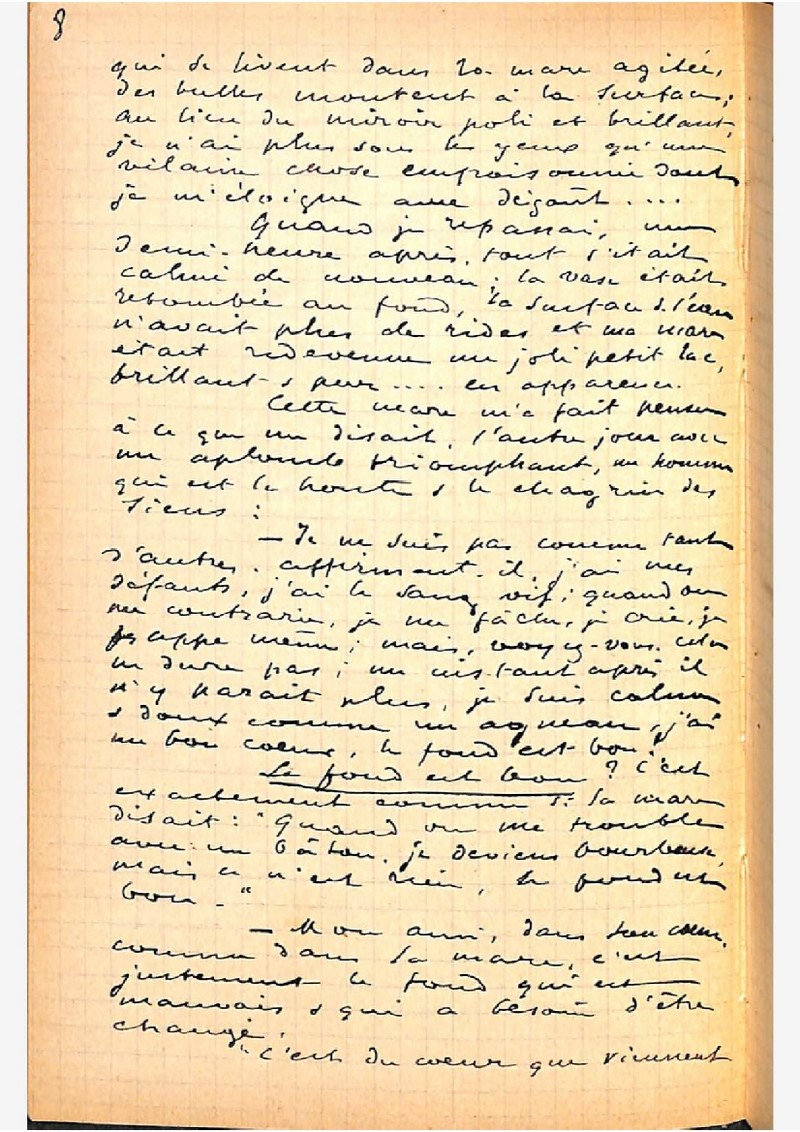 8
qui se livent dans la mare agitée,
des bulles montent à la surface;
au lieu du miroir poli et brillant,
je n'ai plus sous les yeux qu'une
vilaine chose empoisonnée dont
je m'éloigne avec dégoût....
Quand je repassai, une
demi-heure après, tout s'était
calmé de nouveau; la vase était
retombée au fond, la surface de l'eau
n'avait plus de rides et ma mare
était redevenue un joli petit lac,
brillant & pur.... en apparence.
Cette mare m'a fait penser
à ce que me disait, l'autre jour avec
un aplomb triomphant, un homme
qui est la honte & le chagrin des
siens :
— Je ne suis pas comme tant
d'autres, affirmait-il, j'ai mes
défauts, j'ai le sang vif; quand on
me contrarie, je me fâche, je crie, je
frappe même; mais, voyez-vous, cela
ne dure pas; un instant après il
n'y paraît plus, je suis calme
& doux comme un agneau, j'ai
un bon cœur, le fond est bon!
Le fond est bon ? C'est
exactement comme si la mare
disait: "Quand on me trouble
avec un bâton, je deviens bourbeuse,
mais ce n'est rien, le fond est
bon."
— Mon ami, dans ton cœur,
comme dans la mare, c'est
justement le fond qui est
mauvais & qui a besoin d'être
changé.
"C'est du cœur que viennent